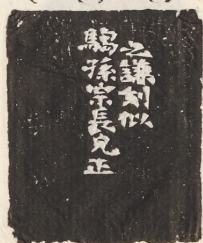 之謙刻似
孫宗長兄正